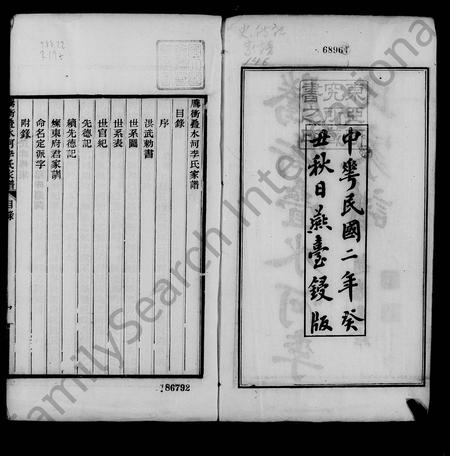 68961
中華民國二年癸
丑秋日燕臺鋟版
騰衝疊水河李氏家譜
目錄
序
洪武勅書
世系圖
世系表
世官紀
先德記
續先德記
命名定派字
附錄
目錄
186792
FamilySearch International